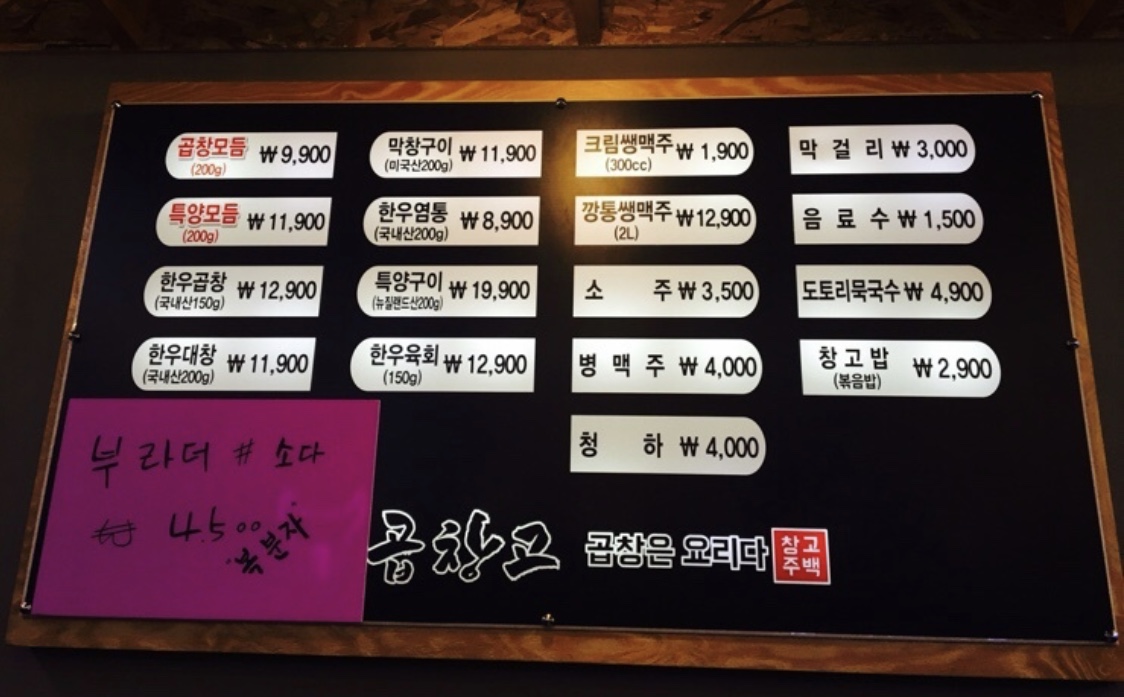 곱창모듬 ₩ 9,900
(200g)
특양모듬 ₩ 11,900
(200g)
한우곱창 ₩ 12,900
(국내산150g)
한우대창 ₩ 11,900
(국내산200g)
막창구이 ₩ 11,900
(미국산200g)
한우염통 ₩ 8,900
(국내산200g)
특양구이 ₩ 19,900
(뉴질랜드산200g)
한우육회 ₩ 12,900
(150g)
크림쌩맥주 ₩ 1,900
(300cc)
깡통쌩맥주 ₩12,900
(2L)
소 주 ₩ 3,500
병 맥 주 ₩ 4,000
청 하 ₩ 4,000
막 걸 리 ₩ 3,000
음 료 수 ₩ 1,500
도토리묵국수 ₩ 4,900
창 고 밥 ₩ 2,900
(볶음밥)
부라더 # 소다
₩ 4.500
복분자
곱창고 곱창은 요리다 창고
주백